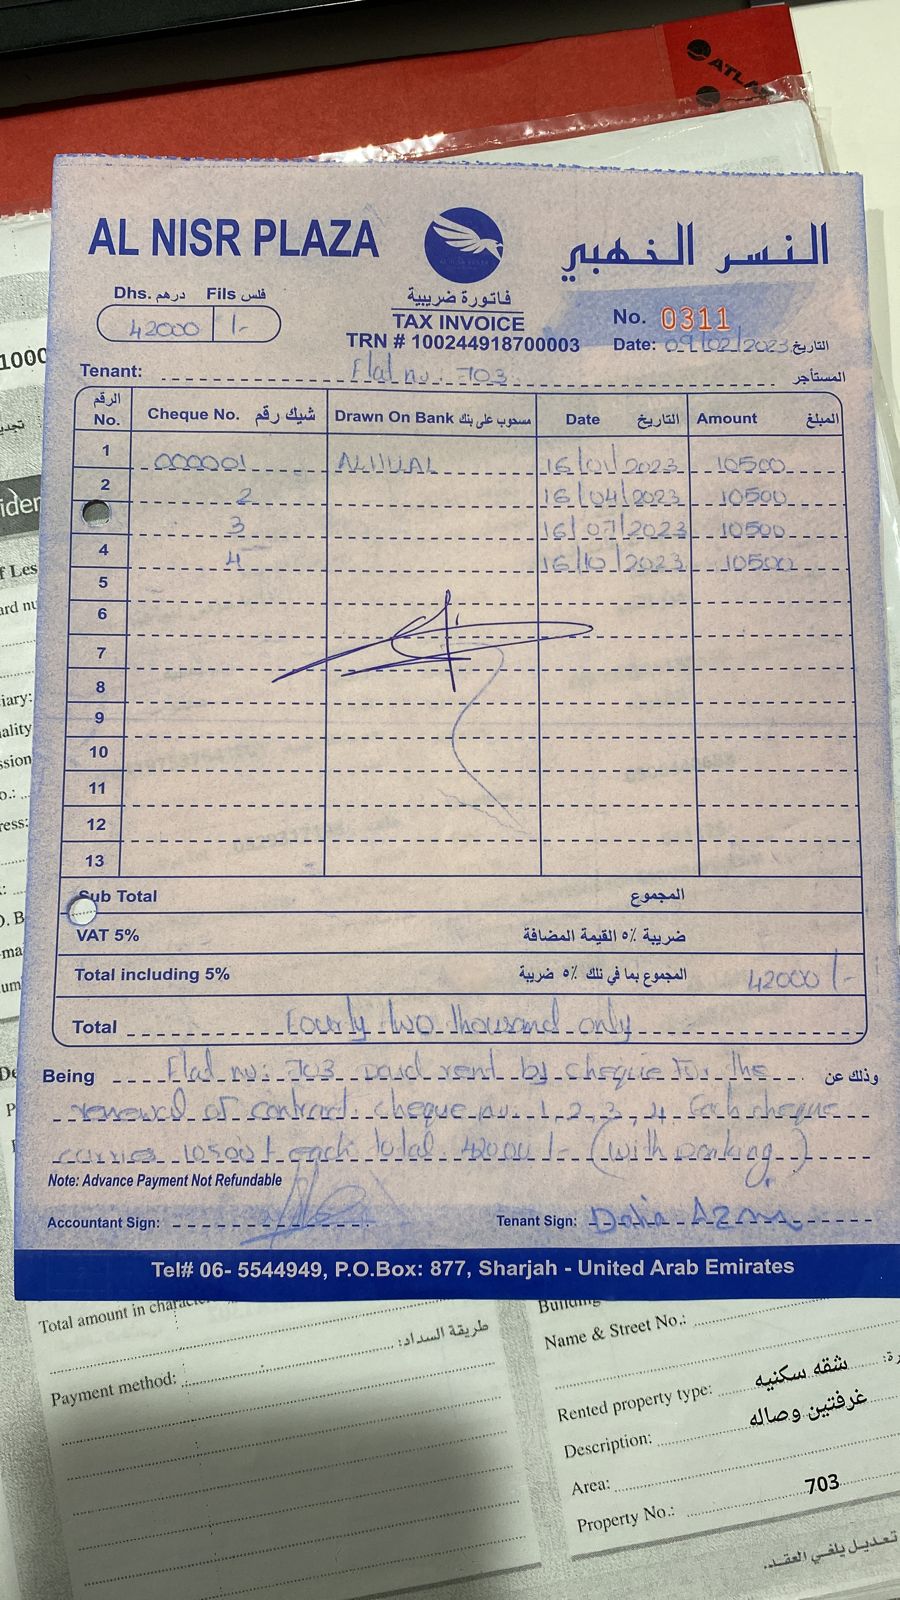 ATLAS
AL NISR PLAZA
النسر الذهبي
Dhs. درهم Fils فلس
42000 /-
فاتورة ضريبية
TAX INVOICE
TRN # 100244918700003
No. 0311
Date: 09/02/2023 التاريخ
Tenant: Flat no: 703 المستأجر
الرقم No. Cheque No. شيك رقم Drawn On Bank مسحوب على بنك Date التاريخ Amount المبلغ
1 000001 16/01/2023 10500
2 2 16/04/2023 10500
3 16/07/2023 10500
4 4 16/10/2023 10500
5
6
7
8
9
10
11
12
13
Sub Total المجموع
VAT 5% ضريبة ٥٪ القيمة المضافة
Total including 5% المجموع بما في ذلك ٥٪ ضريبة 42000/-
Total Fourty two thousand only
Being Flat no: 703 paid rent by cheque For the وذلك عن
renewal of contract. cheque no. 1, 2, 3, 4 Each cheque
carries 10500/- each total 42000/- (with parking)
Note: Advance Payment Not Refundable
Accountant Sign: Tenant Sign:
Tel# 06- 5544949, P.O.Box: 877, Sharjah - United Arab Emirates
Total amount in
طريقة السداد:
Payment method:
Building
Name & Street No.:
Rented property type: شقه سكنيه
Description: غرفتين وصاله
Area:
Property No.: 703
تعديل يلغي العقد.